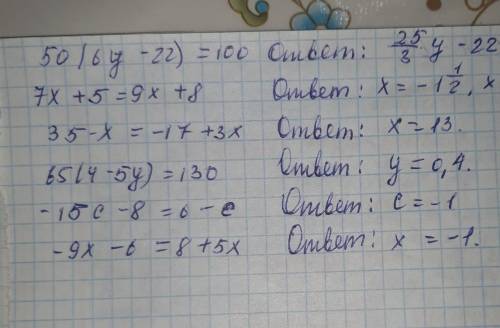 50(6y - 22) = 100 Ответ: 25/3 y - 22
7x + 5 = 9x + 8 Ответ: x = -1 1/2, x
35 - x = -17 + 3x Ответ: x = 13.
65(4 - 5y) = 130 Ответ: y = 0,4.
-15c - 8 = 6 - c Ответ: c = -1
-9x - 6 = 8 + 5x Ответ: x = -1.